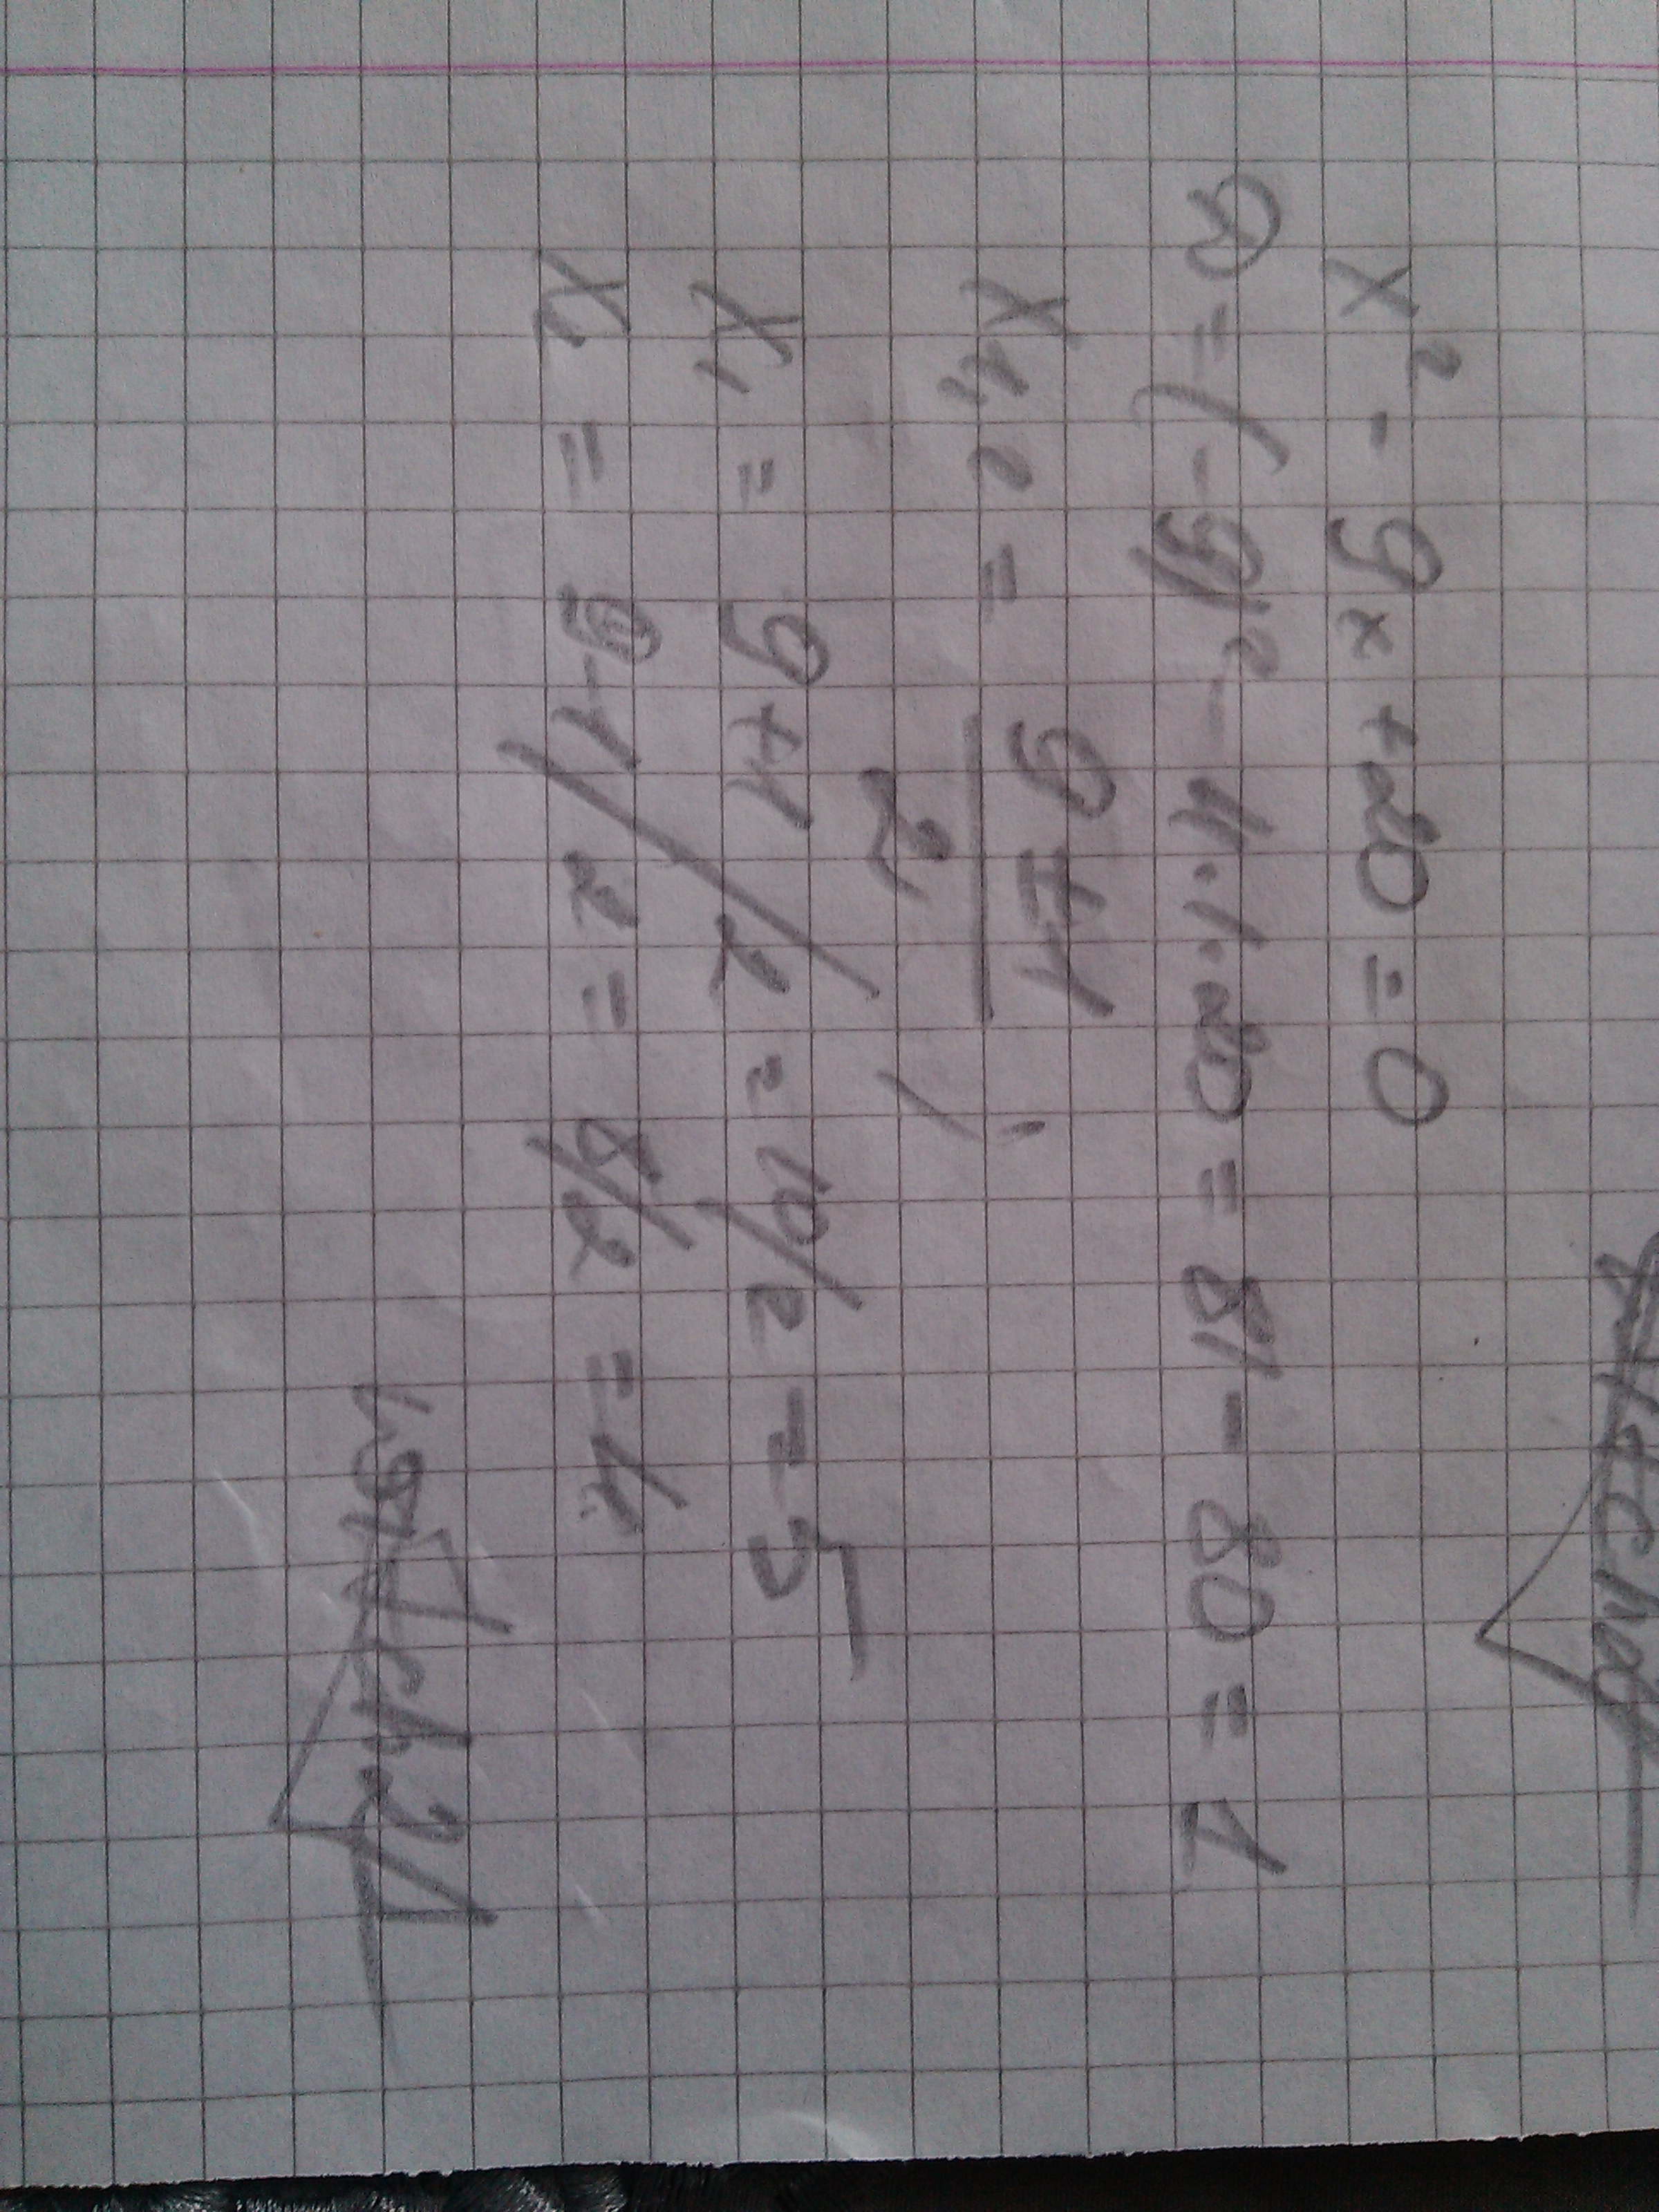 x² - 9x + 20 = 0
D = (-9)² - 4·1·20 = 81 - 80 = 1
x₁,₂ = (9 ± 1) / 2 ;
x₁ = 9+1/2 = 10/2 = 5
x₂ = 9-1/2 = 8/2 = 4